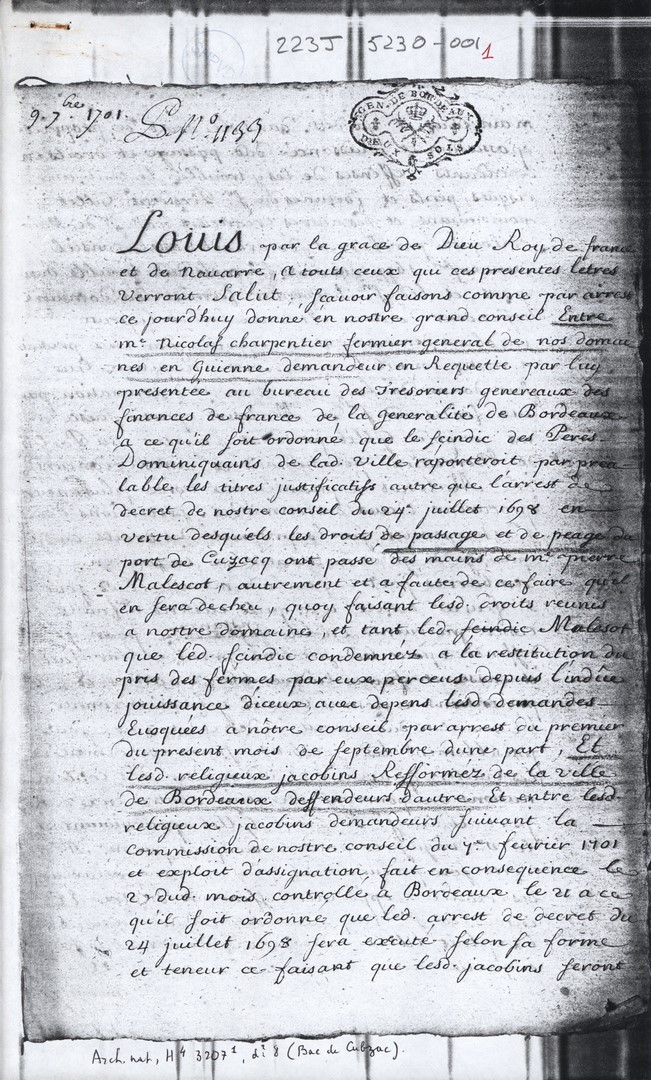 223J 5230-001
1
9. 7.bre 1701.
P. N.° 1133
GEN. DE BORDEAUX
DEUX SOLS
Louis par la grace de Dieu Roy de france
et de Nauarre, A touts ceux qui ces presentes letres
verront Salut, scauoir faisons comme par arrest
ce jourdhuy donné en nostre grand conseil Entre
m.e Nicolas charpentier fermier general de nos domai
nes en Guienne demandeur en Requette par luy
presentée au bureau des Tresoriers genereaux des
finances de france de la generalité de Bordeaux
a ce qu'il soit ordonné que le scindic des Peres
Dominiquains de lad. Ville raporteroit par prea
lable les titres justificatifs autre que l'arrest de
decret de nostre conseil du 24.e juillet 1698 en
vertu desquels les droits de passage et de peage du
port de Cuzacq ont passé des mains de m.e pierre
Malescot, autrement et a faute de ce faire qu'il
en sera decheu, quoy faisant lesd. droits reunis
a nostre domaine, et tant led. scindic Malescot
que led. scindic condemnez a la restitution du
pris des fermes par eux perceus depuis l'indüe
jouissance d'iceux, auec depens lesd. demandes
Euoquées a nôtre conseil par arrest du premier
du present mois de septembre d'une part, Et
lesd. religieux jacobins Refformez de la ville
de Bordeaux deffendeurs d'autre Et entre lesd
religieux jacobins demandeurs suiuant la
Commission de nostre conseil du 7.e feurier 1701
et exploit d'assignation fait en consequence le
dud. mois controllé a Bordeaux le 21 a ce
qu'il soit ordonné que led. arrest de decret du
24 juillet 1698 sera executé selon sa forme
et teneur ce faisant que lesd. jacobins seront
Arch. nat, H4 3207¹, d.r 8 (Bac de Cubzac).